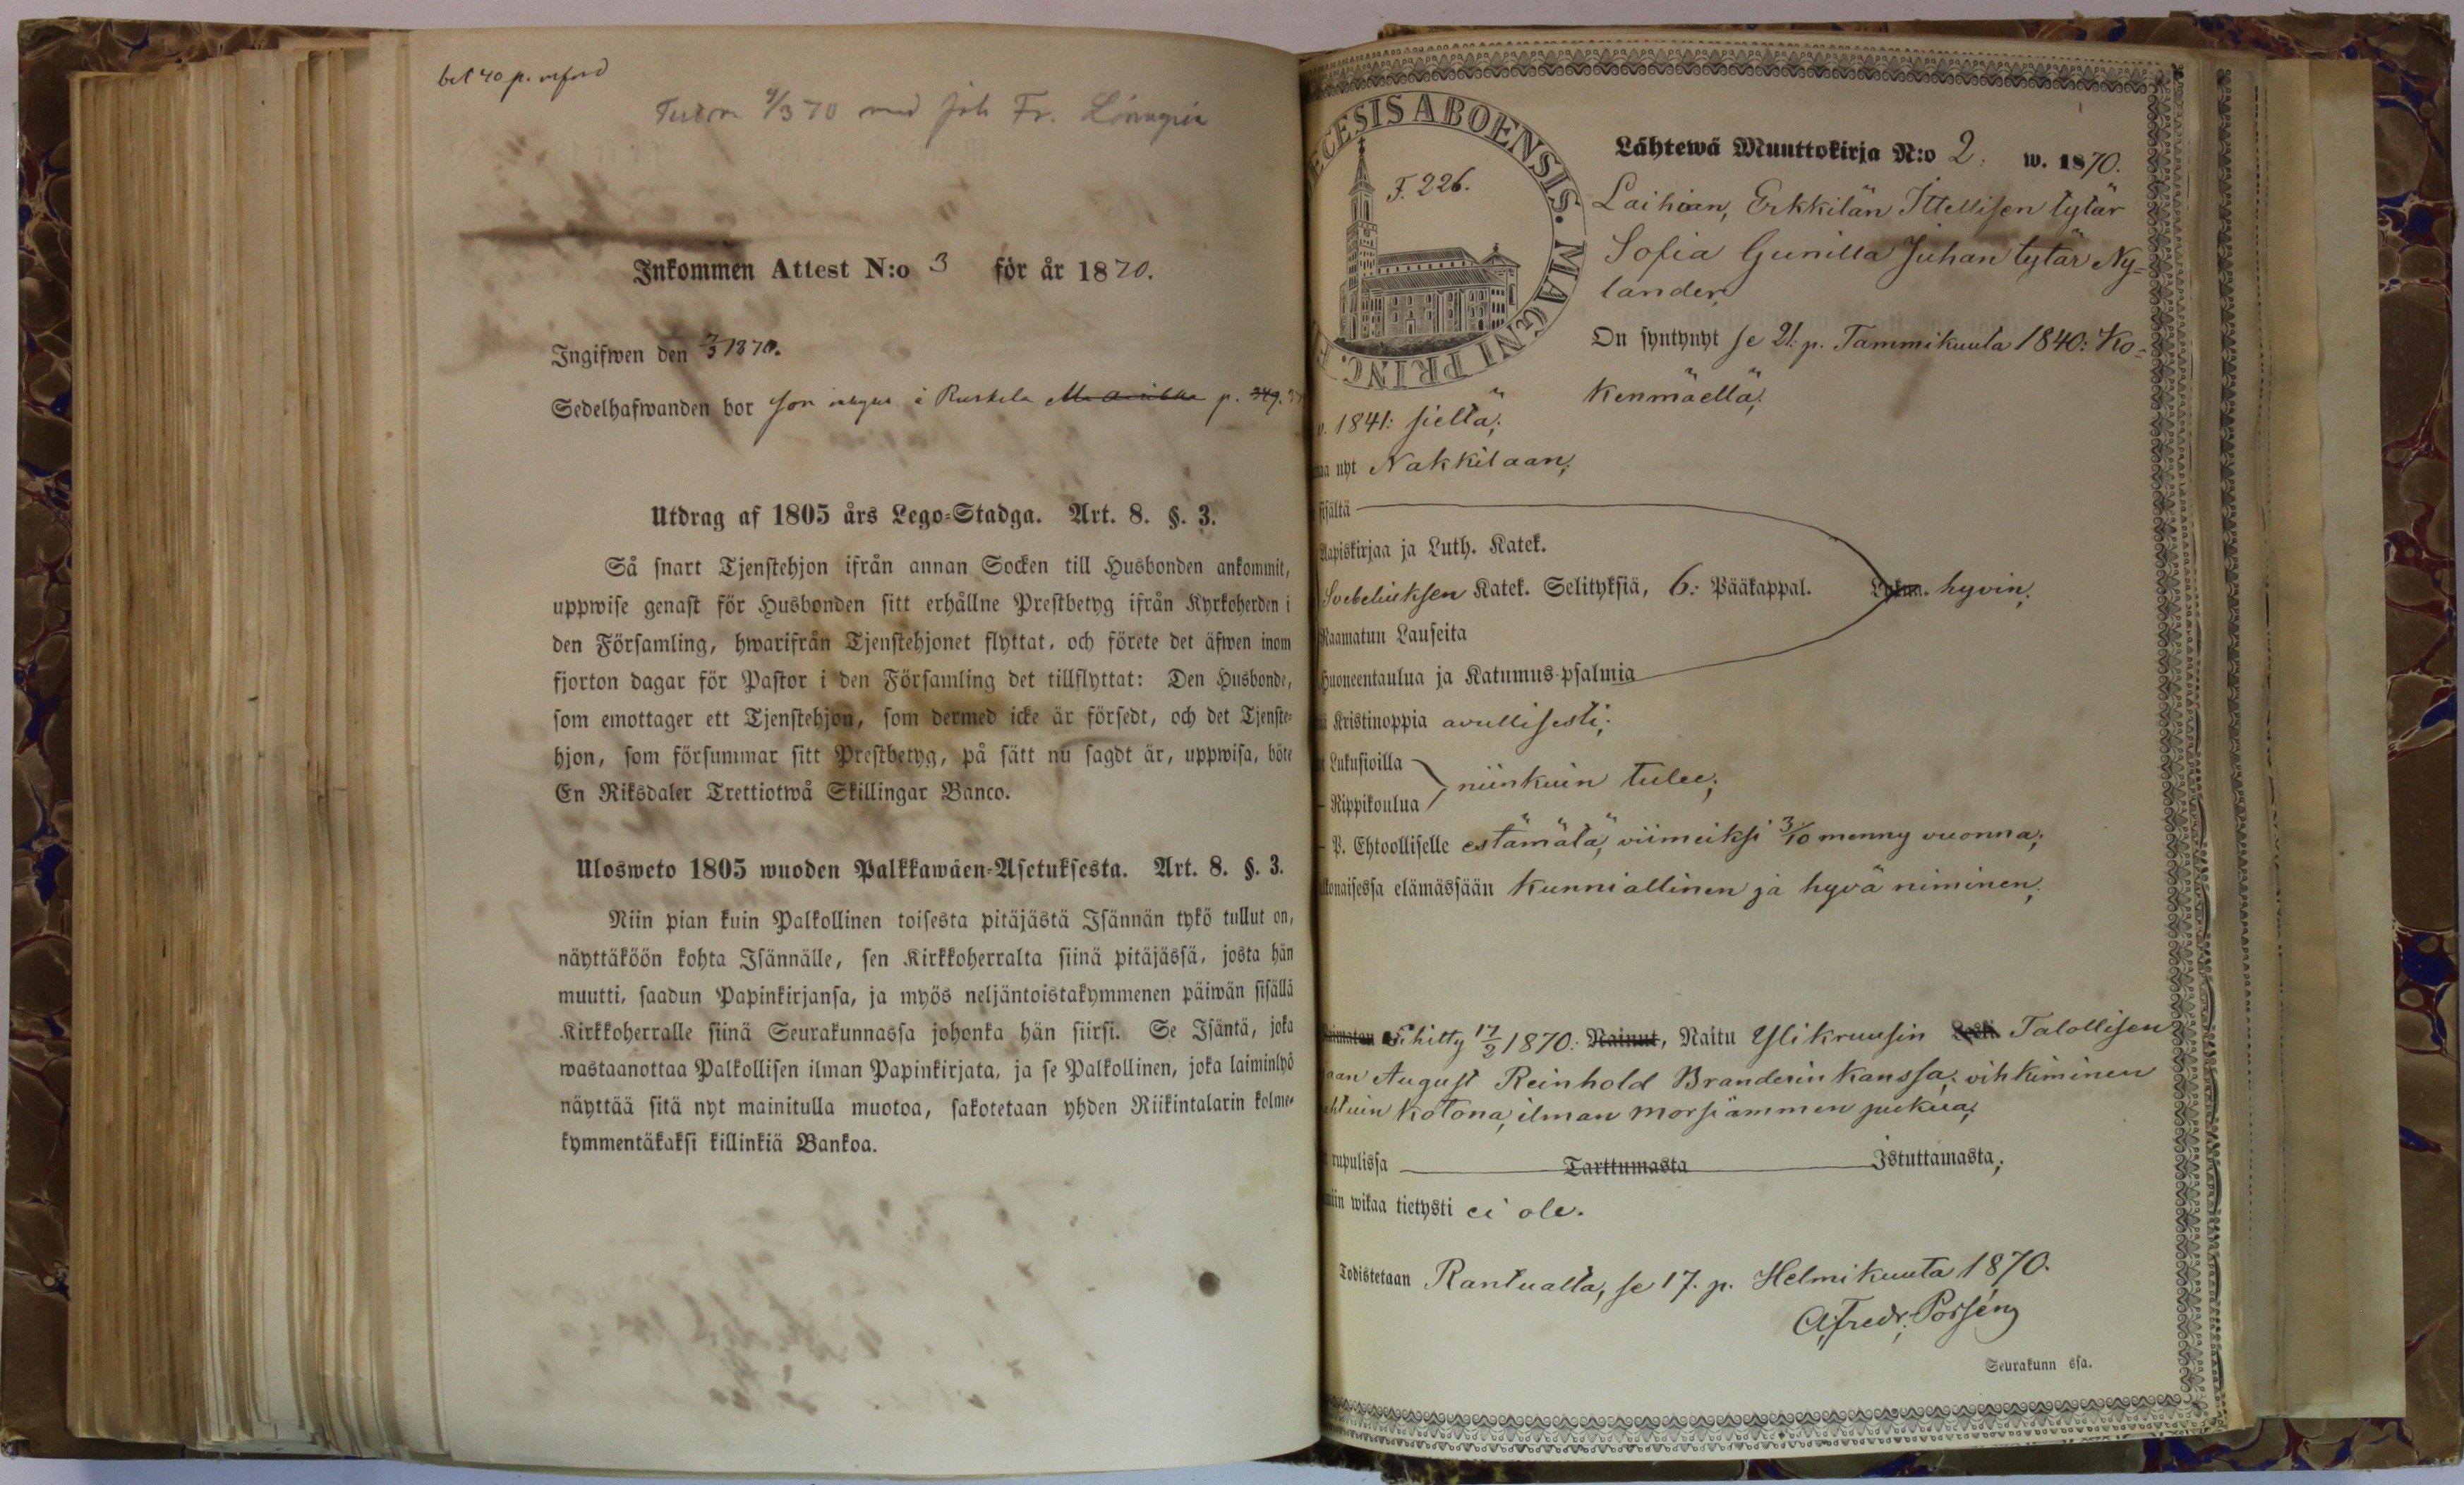 bet 40 p.
9/3 70 med Joh Fr.
Inkommen Attest N:o 3 för år 1870.
Ingifwen den 3/3 1870.
Sedelhafwanden bor i p. 349.
Utdrag af 1805 års Lego-Stadga. Art. 8. §. 3.
Så snart Tjenstehjon ifrån annan Socken till Husbonden ankommit,
uppwise genast för Husbonden sitt erhållne Prestbetyg ifrån Kyrkoherden i
den Församling, hwarifrån Tjenstehjonet flyttat, och förete det äfwen inom
fjorton dagar för Pastor i den Församling det tillflyttat: Den Husbonde,
som emottager ett Tjenstehjon, som dermed icke är försedt, och det Tjenste-
hjon, som försummar sitt Prestbetyg, på sätt nu sagdt är, uppwisa, böte
En Riksdaler Trettiotwå Skillingar Banco.
Ulosweto 1805 wuoden Palkkawäen-Asetuksesta. Art. 8. §. 3.
Niin pian kuin Palkollinen toisesta pitäjästä Isännän tykö tullut on,
näyttäköön kohta Isännälle, sen Kirkkoherralta siinä pitäjässä, josta hän
muutti, saadun Papinkirjansa, ja myös neljäntoistakymmenen päiwän sisällä
Kirkkoherralle siinä Seurakunnassa johonka hän siirsi. Se Isäntä, joka
wastaanottaa Palkollisen ilman Papinkirjata, ja se Palkollinen, joka laiminlyö
näyttää sitä nyt mainitulla muotoa, sakotetaan yhden Riikintalarin kolme-
kymmentäkaksi killinkiä Bankoa.
ECESIS ABOENSIS. MAGNI PRINC. F
F. 226.
Lähtewä Muuttokirja N:o 2. w. 1870.
Laihian, Erkkilän Ittellisen tytär
Sofia Gunilla Juhan tytär Ny-
lander,
On syntynyt se 21. p. Tammikuuta 1840: Ko-
kenmäellä;
1841: siellä;
nyt Nakkilaan;
sisältä
Aapiskirjaa ja Luth. Katek.
Svebeliuksen Katek. Selityksiä, 6: Pääkappal. hyvin;
Raamatun Lauseita
Huoneentaulua ja Katumus-psalmia
Kristinoppia avullisesti;
Lukusioilla
Rippikoulua niinkuin tulee;
P. Ehtoolliselle estämätä, viimeiksi 3/10 menny vuonna;
elämässään kunniallinen ja hyvä niminen;
kihitty 17/2 1870: Nainut, Naitu Ylikruusin Talollisen
August Reinhold Branderin kanssa; vihkiminen
kotona, ilman morsiammen pukua;
rupulissa Tarttumasta Istuttamasta;
wikaa tietysti ei ole.
Todistetaan Rantualla, se 17. p. Helmikuuta 1870.
A. Fredr. Porsén
Seurakunn ssa.